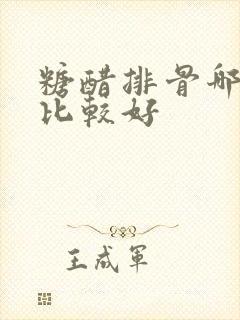 糖醋排骨哪
比较好
王成军